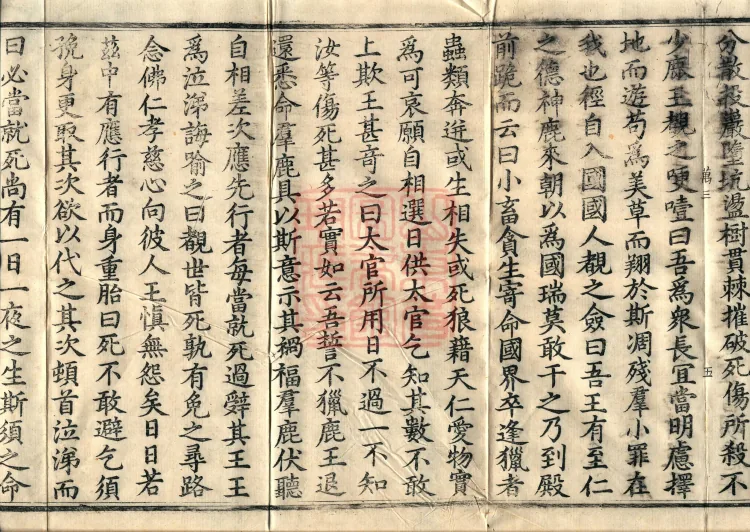 分散投巖墮坑盪樹貫棘摧破死傷所殺不
少鹿王覩之哽噎曰吾爲衆長宜當明慮擇
地而遊苟爲美草而翔於斯凋殘羣小罪在
我也徑自入國國人覩之僉曰吾王有至仁
之德神鹿來朝以爲國瑞莫敢干之乃到殿
前跪而云曰小畜貪生寄命國界卒逢獵者
蟲類奔迸或生相失或死狼藉天仁愛物實
爲可哀願自相選日供太官乞知其數不敢
上欺王甚奇之曰太官所用日不過一不知
汝等傷死甚多若實如云吾誓不獵鹿王退
還悉命羣鹿具以斯意示其禍福羣鹿伏聽
自相差次應先行者每當就死過辭其王王
爲泣涕誨喻之曰覩世皆死孰有免之尋路
念佛仁孝慈心向彼人王愼無怨矣日日若
茲中有應行者而身重胎曰死不敢避乞須
㝃身更取其次欲以代之其次頓首泣涕而
曰必當就死尚有一日一夜之生斯須之命
萬三
五